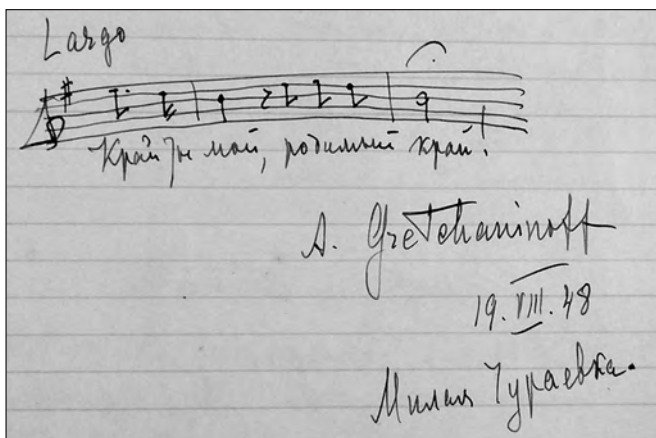 Largo
Край ты мой, родимый край!
A. Gretchaninoff
19.VIII.48
Милая Чураевка.